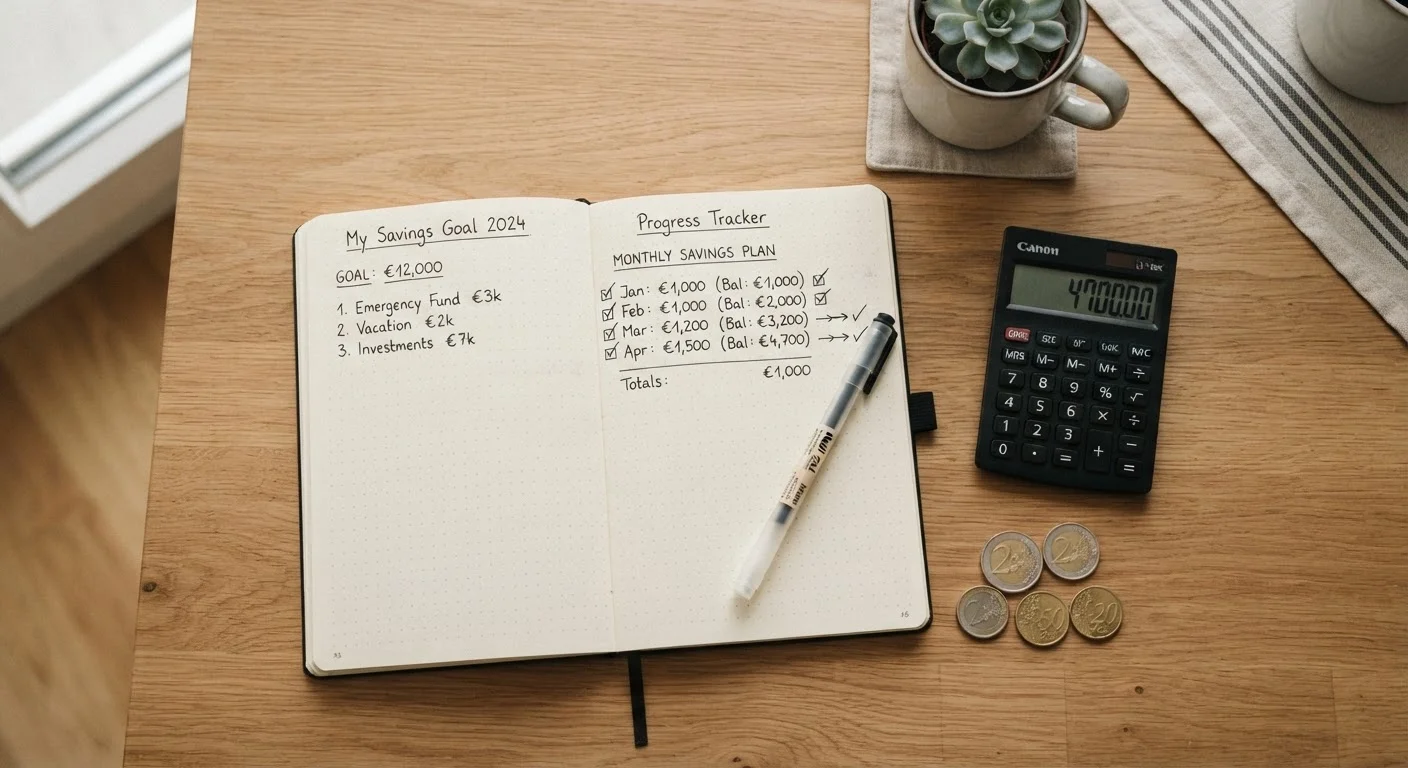 My Savings Goal 2024
GOAL: €12,000
1. Emergency Fund €3k
2. Vacation €2k
3. Investments €7k
Progress Tracker
MONTHLY SAVINGS PLAN
☑ Jan: €1,000 (Bal: €1,000) ☑
☑ Feb: €1,000 (Bal: €2,000) ☑
☑ Mar: €1,200 (Bal: €3,200) →→ ✓
☑ Apr: €1,500 (Bal: €4,700) →→ ✓
Totals: €1,000
Canon
470000
MRS M− M− M+ ÷
7 8 9 % √
4 5 6 × ÷
1 2 3 + −
0 · = =
2 2
2 50 20